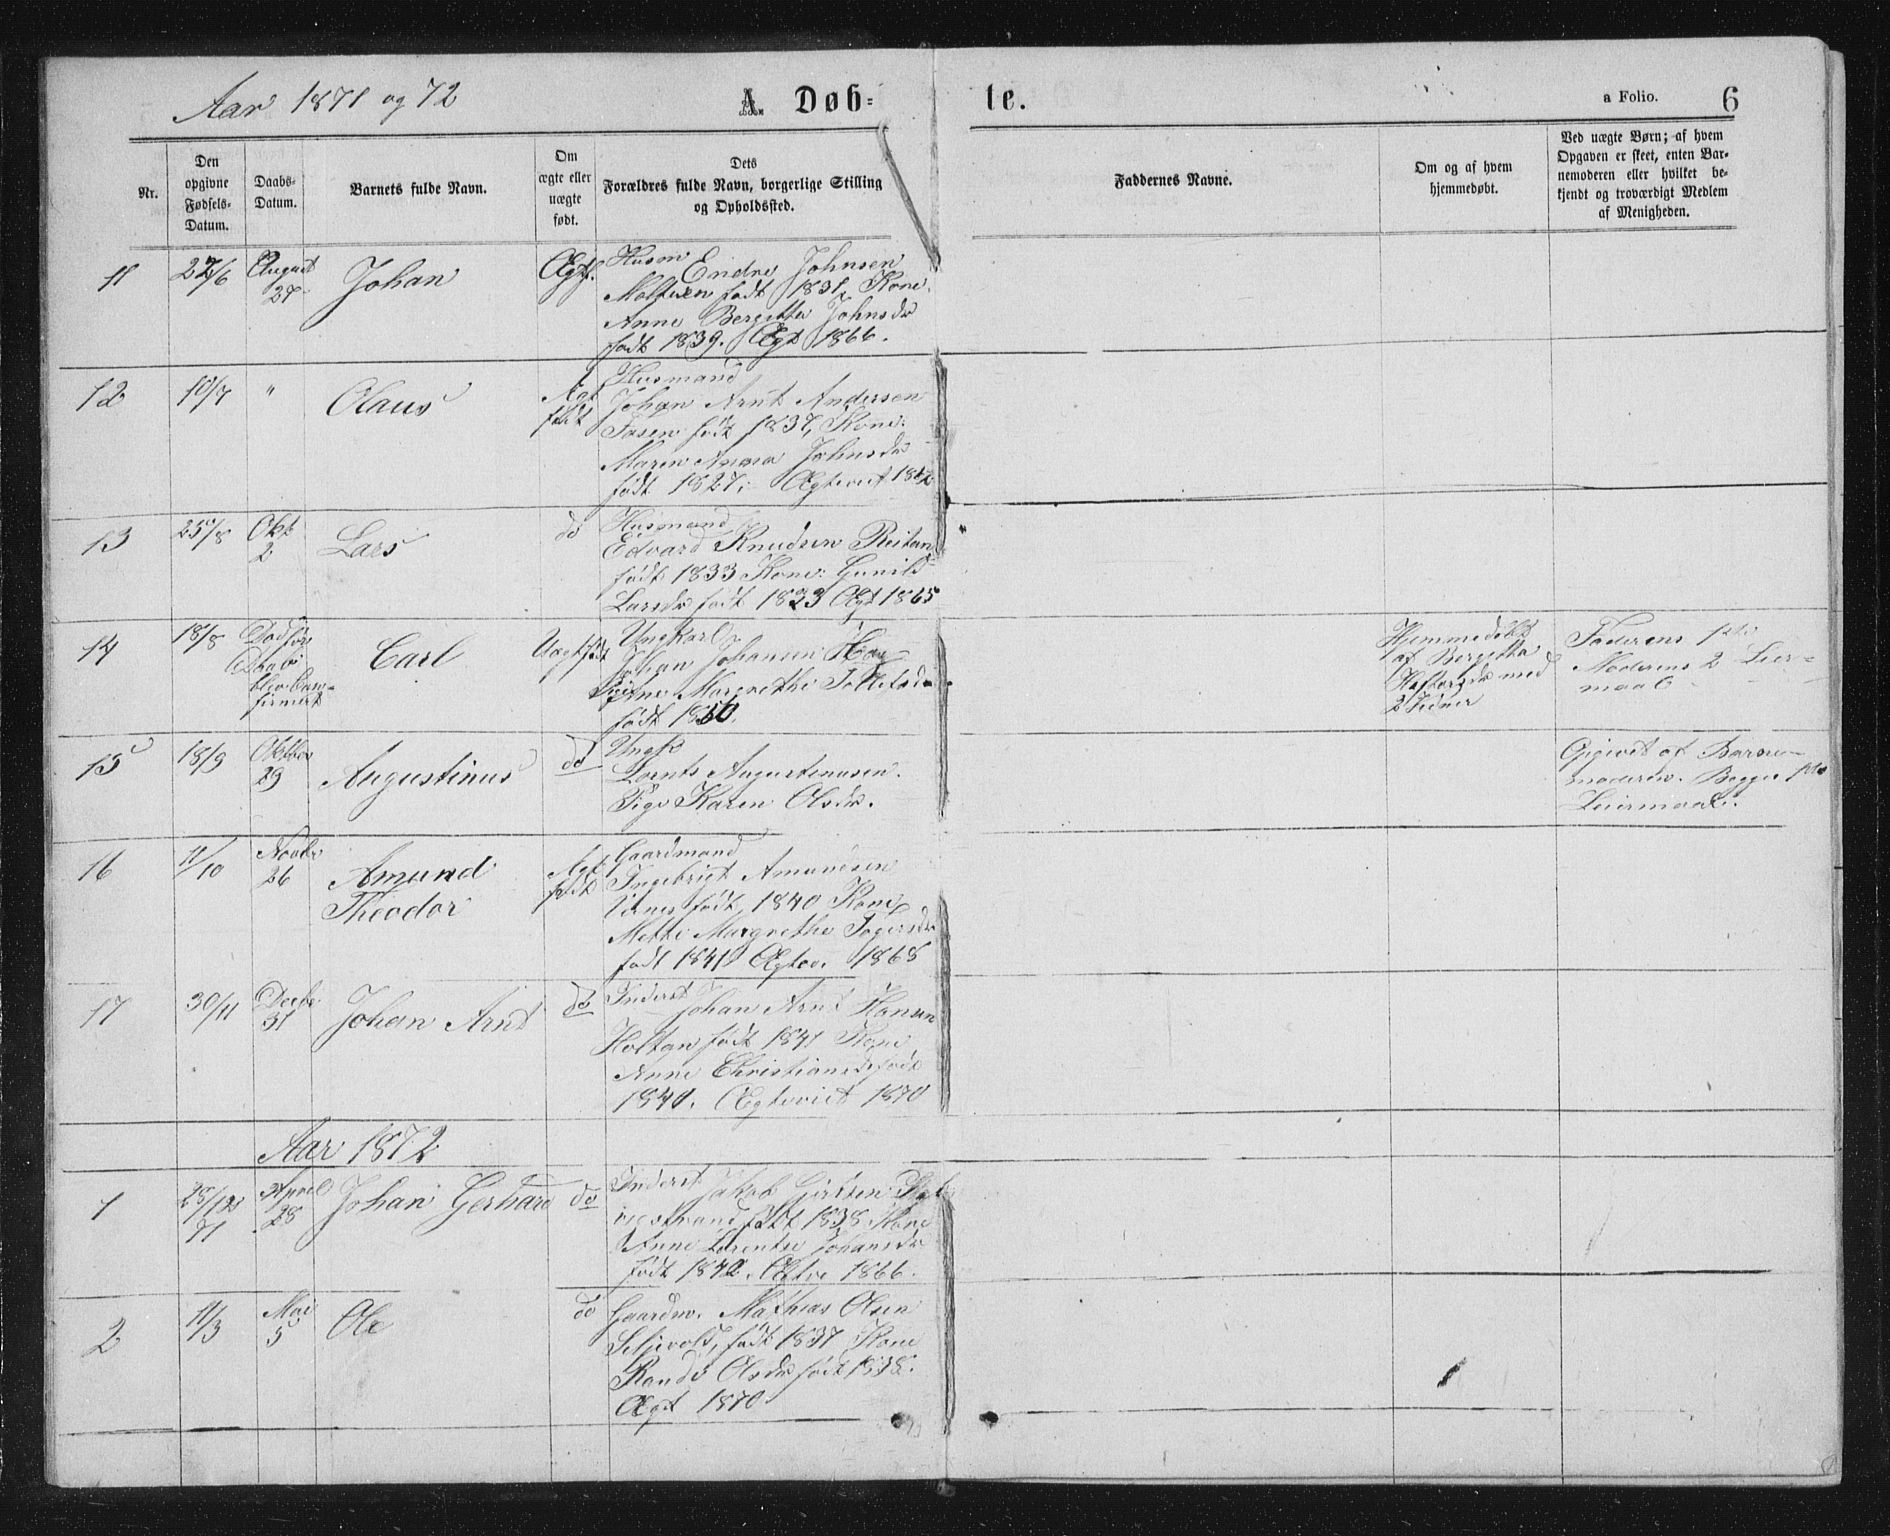 Aar 1871 og 72
A. Døb-
te.
a Folio.
6
Nr.
Den
opgivne
Fødsels-
Datum.
Daabs-
Datum.
Barnets fulde Navn.
Om
ægte eller
uægte
født.
Dets
Forældres fulde Navn, borgerlige Stilling
og Opholdssted.
Faddernes Navne.
Om og af hvem
hjemmedøbt.
Ved uægte Børn; af hvem
Opgaven er skeet, enten Bar-
nemoderen eller hvilket be-
kjendt og troværdigt Medlem
af Menigheden.
11
22/6
August
27
Johan
Ægtf.
Husm
Endre Johnsen
født 1831, Kone
Anne Bergitta Johnsdr
født 1839. Ægt 1866.
12
10/7
"
Olaus
Ægt
født
Husmand
Johan Arnt Andersen
født 1837, Kone:
Maren Anna Johnsdr
født 1827, Ægteviet 1862
13
25/8
Okt
2
Lars
do
Husmand
Edvard Knudsen Reitan
født 1833 Kone: Gunild
Larsdr født 1823 Ægt 1865
14
18/8
Død før
Daab
blev Con-
firmert
Carl
Uægtefødt
Ungkarl
Johan Johansen
Pige Ane Margrethe
født 1850.
Hjemmedøbt
af Bergitta
med
2 Vidner
Faderens 1ste
Moderens 2 Leier-
maal
15
18/9
Oktbr
29
Augustinus
do
Ungk
Lornts Augustinusen.
Pige Karen Olsdr.
Opgivet af Barne-
moderen. Begges 1ste
Leiermaal.
16
11/10
Novbr
26
Amund
Theodor
Ægt
født
Gaardmand
Ingebrigt Amundsen
født 1840 Kone
Mette Margrethe
født 1841 Ægtev. 1868
17
30/11
Decbr
31
Johan Arnt
do
Inderst
Johan Arnt Hansen
Holtan født 1841 Kone
Anne Christiansdr født
1840. Ægteviet 1870
Aar 1872
1
28/12
71
April
28
Johan Gerhard
do
Inderst
Jakob
født 1838 Kone
Anne Lorentse Johansdr
født 1842. Ægtev 1866.
2
11/3
Mai
5
Ole
do
Gaardm. Mathias Olsen
Seljevold, født 1837 Kone
Randi Olsdr født 1838.
Ægt 1870